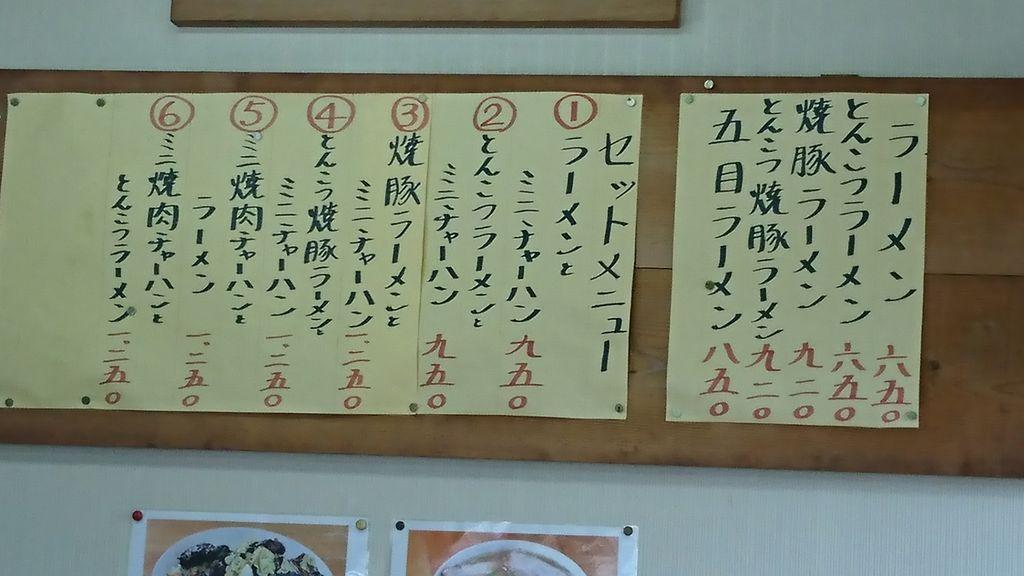 ラーメン 六五〇
とんこつラーメン 六五〇
焼豚ラーメン 九二〇
とんこつ焼豚ラーメン 九二〇
五目ラーメン 八五〇
セットメニュー
① ラーメンと
ミニチャーハン 九五〇
② とんこつラーメンと
ミニチャーハン 九五〇
③ 焼豚ラーメンと
ミニチャーハン 一、二五〇
④ とんこつ焼豚ラーメンと
ミニチャーハン 一、二五〇
⑤ ミニ焼肉チャーハンと
ラーメン 一、二五〇
⑥ ミニ焼肉チャーハンと
とんこつラーメン 一、二五〇